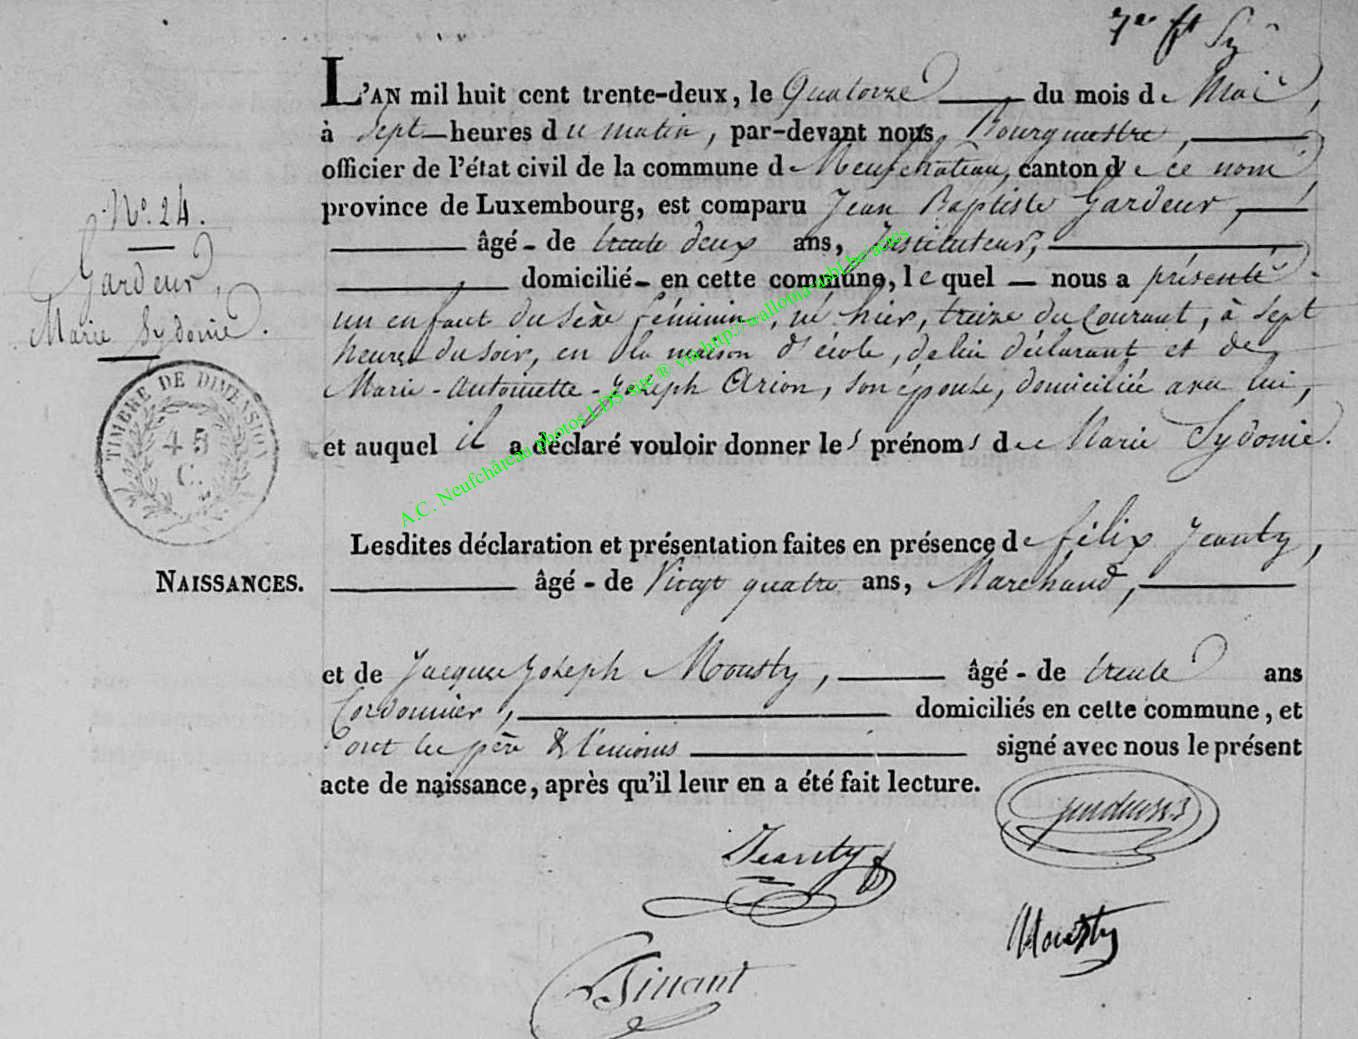 L'AN mil huit cent trente-deux, le Quatorze du mois de Mai,
à sept heures du matin, par-devant nous, Bourgmestre,
officier de l'état civil de la commune de Neufchateau, canton de ce nom,
province de Luxembourg, est comparu Jean Baptiste Gardeur,
âgé - de trente deux ans, Instituteur,
domicilié - en cette commune, lequel — nous a présenté
un enfant du sèxe féminin, né hier, treize du Courant, à sept
heures du soir, en la maison d'école, de lui déclarant et de
Marie-Antoinette-Joseph Arion, son épouse, domiciliée avec lui,
et auquel il a déclaré vouloir donner les prénoms de Marie Sydonie.
N°. 24.
Gardeur,
Marie Sydonie.
TIMBRE DE DIMENSION
45
C.
NAISSANCES.
Lesdites déclaration et présentation faites en présence de félix Jeanty,
âgé - de Vingt quatre ans, Marchand,
et de Jacques Joseph Mousty, âgé - de trente ans
Cordonnier, domiciliés en cette commune, et
ont les père & témoins signé avec nous le présent
acte de naissance, après qu'il leur en a été fait lecture.
Jeanty
Mousty
Tinant
A.C. Neufchâteau photos LDS site ® via http://wallonia-asbl.be/actes